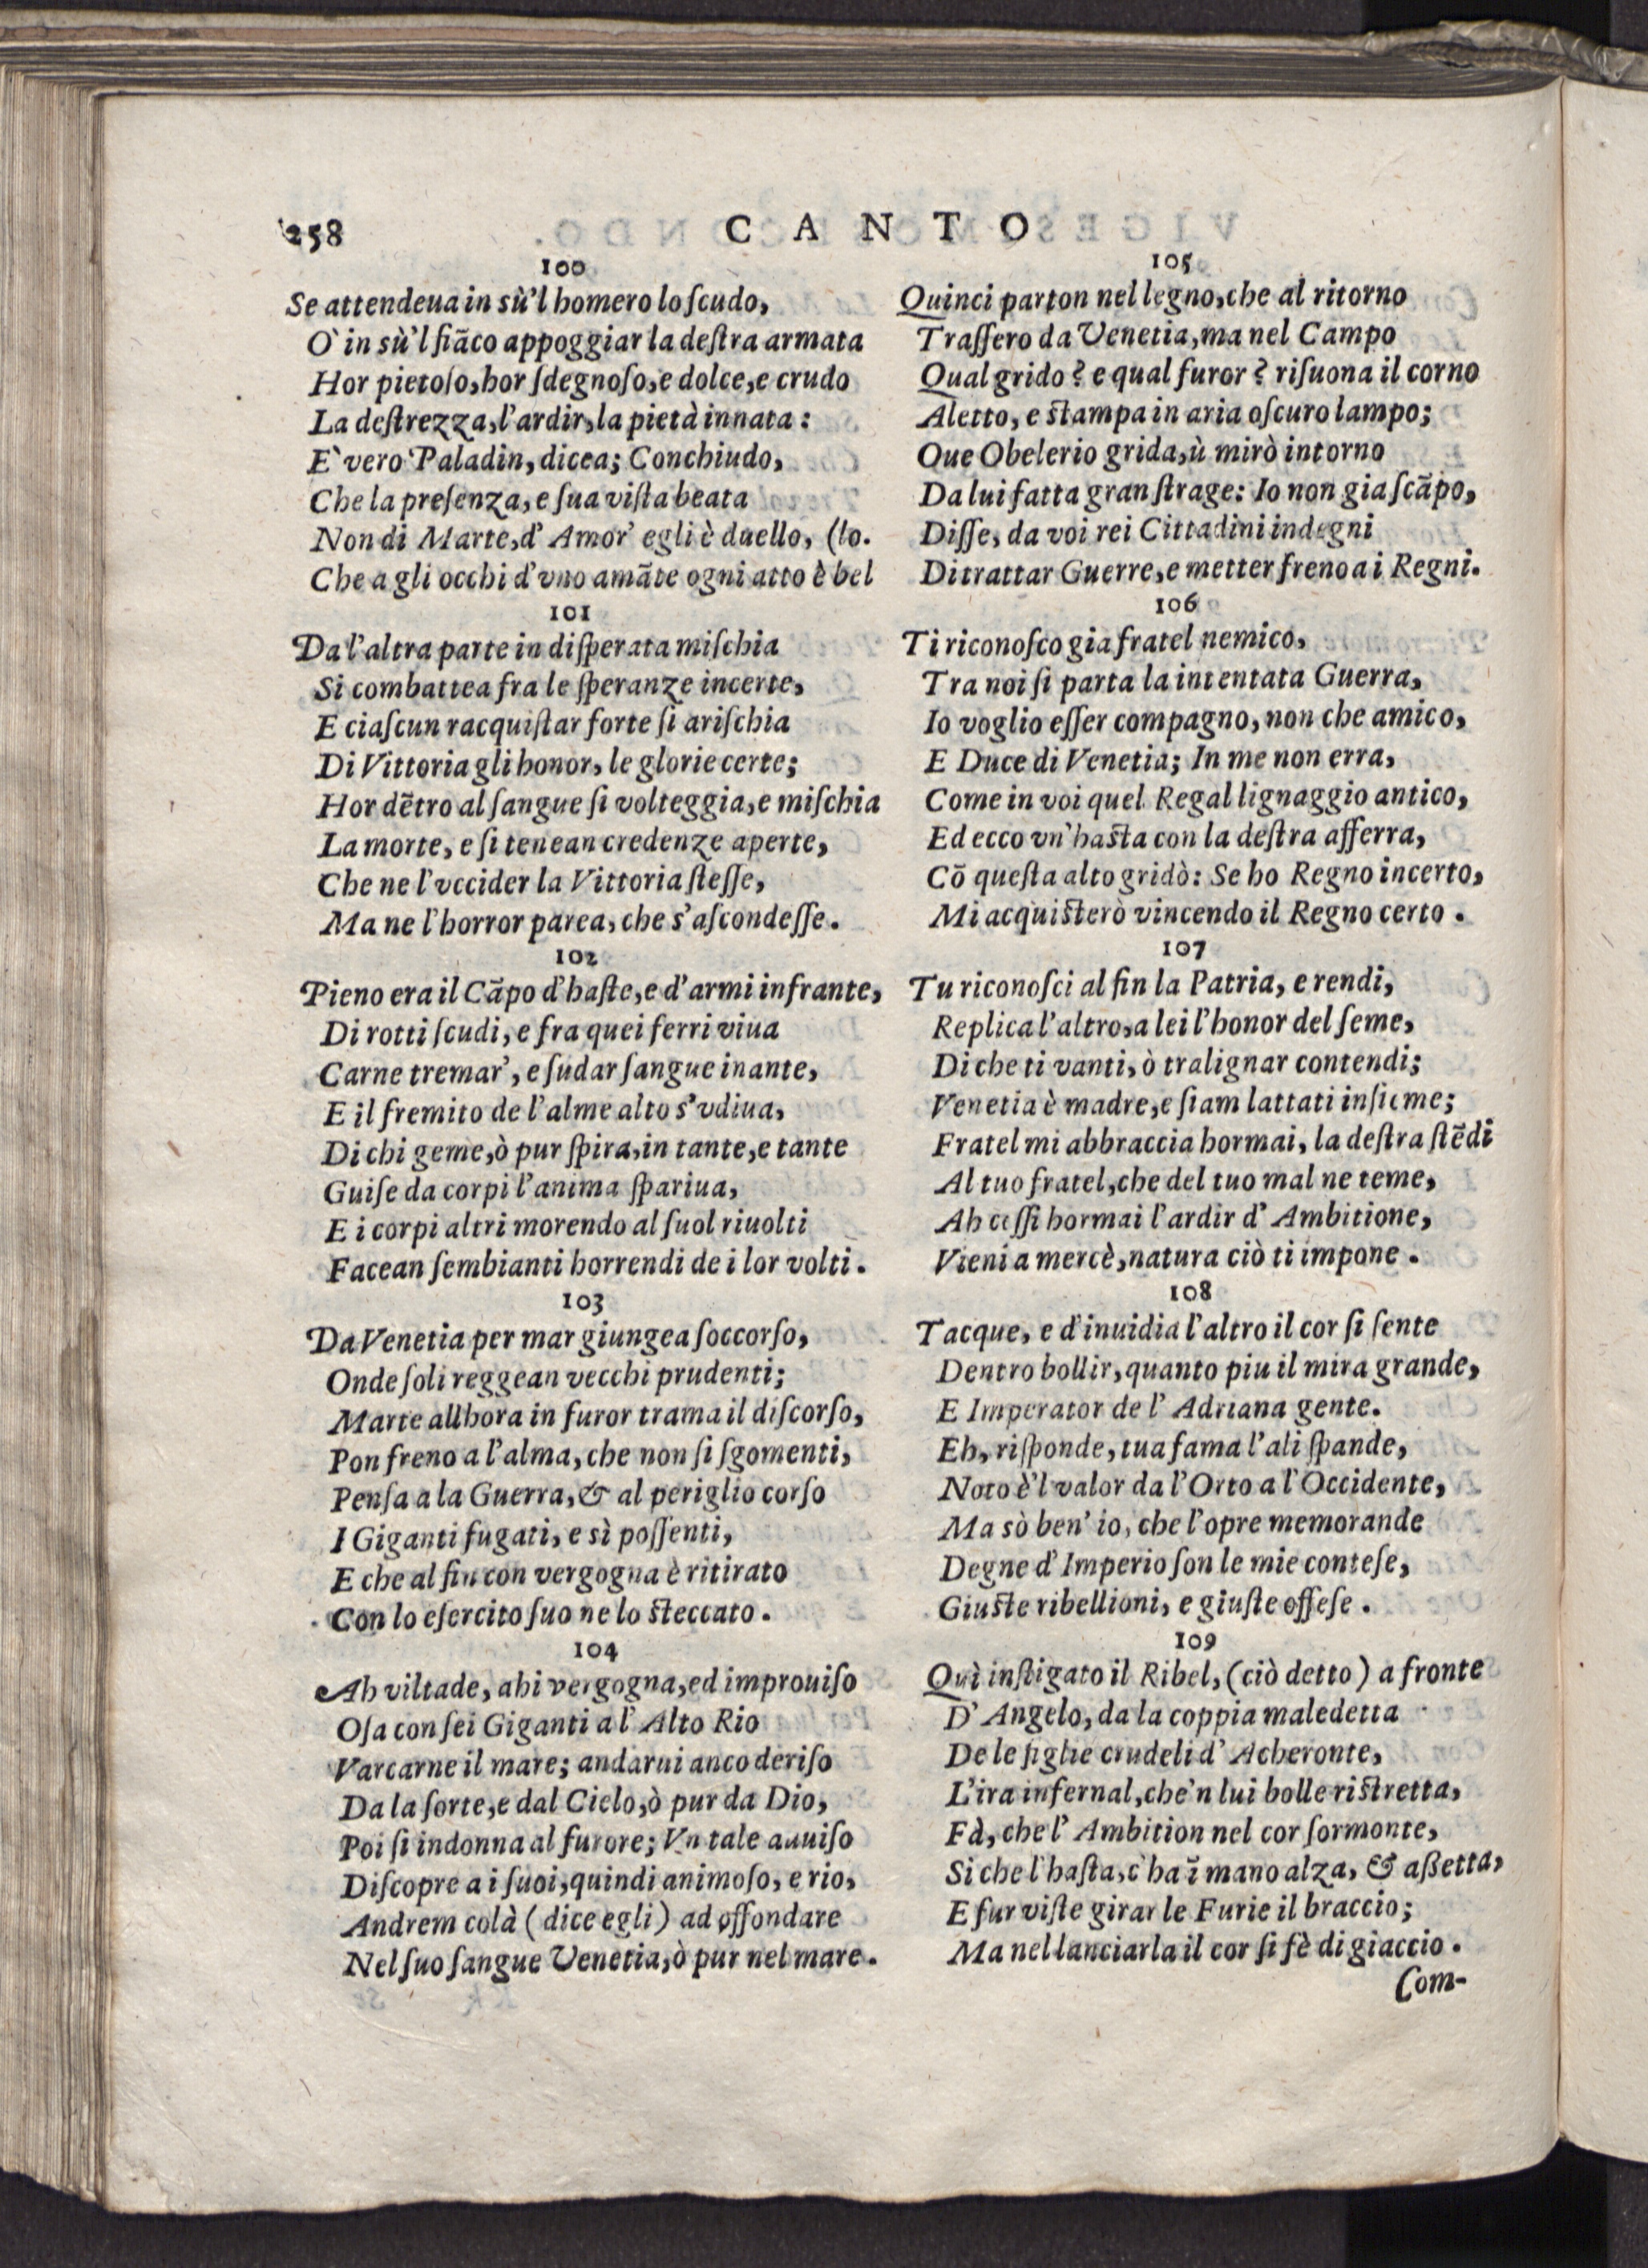 258
CANTO
100
Se attendeua in sù'l homero lo ſcudo,
O' in sù'l fiãco appoggiar la deſtra armata
Hor pietoſo, hor ſdegnoſo, e dolce, e crudo
La deſtrezza, l'ardir, la pietà innata:
E' vero Paladin, dicea; Conchiudo,
Che la preſenza, e ſua viſta beata
Non di Marte, d' Amor' egli è duello, (lo.
Che a gli occhi d'vno amãte ogni atto è bel
101
Da l'altra parte in diſperata miſchia
Si combattea fra le ſperanze incerte,
E ciaſcun racquiſtar forte ſi ariſchia
Di Vittoria gli honor, le glorie certe;
Hor dẽtro al ſangue ſi volteggia, e miſchia
La morte, e ſi tenean credenze aperte,
Che ne l'vccider la Vittoria ſteſſe,
Ma ne l'horror parea, che s'aſcondeſſe.
102
Pieno era il Cãpo d'haſte, e d'armi infrante,
Di rotti ſcudi, e fra quei ferri viua
Carne tremar', e ſudar ſangue inante,
E il fremito de l'alme alto s'vdiua,
Di chi geme, ò pur ſpira, in tante, e tante
Guiſe da corpi l'anima ſpariua,
E i corpi altri morendo al ſuol riuolti
Facean ſembianti horrendi de i lor volti.
103
Da Venetia per mar giungea ſoccorſo,
Onde ſoli reggean vecchi prudenti;
Marte allhora in furor trama il diſcorſo,
Pon freno a l'alma, che non ſi ſgomenti,
Penſa a la Guerra, & al periglio corſo
I Giganti fugati, e sì poſſenti,
E che al fin con vergogna è ritirato
Con lo eſercito ſuo ne lo ſteccato.
104
Ah viltade, ahi vergogna, ed improuiſo
Oſa con ſei Giganti a l' Alto Rio
Varcarne il mare; andarui anco deriſo
Da la ſorte, e dal Cielo, ò pur da Dio,
Poi ſi indonna al furore; Vn tale auuiſo
Diſcopre a i ſuoi, quindi animoſo, e rio,
Andrem colà (dice egli) ad offondare
Nel ſuo ſangue Venetia, ò pur nel mare.
105
Quinci parton nel legno, che al ritorno
Traſſero da Venetia, ma nel Campo
Qual grido? e qual furor? riſuona il corno
Aletto, e ſtampa in aria oſcuro lampo;
Oue Obelerio grida, ù mirò intorno
Da lui fatta gran ſtrage: Io non gia ſcãpo,
Diſſe, da voi rei Cittadini indegni
Di trattar Guerre, e metter freno a i Regni.
106
Ti riconoſco gia fratel nemico,
Tra noi ſi parta la intentata Guerra,
Io voglio eſſer compagno, non che amico,
E Duce di Venetia; In me non erra,
Come in voi quel Regal lignaggio antico,
Ed ecco vn'haſta con la deſtra afferra,
Cõ queſta alto gridò: Se ho Regno incerto,
Mi acquiſterò vincendo il Regno certo.
107
Tu riconoſci al fin la Patria, e rendi,
Replica l'altro, a lei l'honor del ſeme,
Di che ti vanti, ò tralignar contendi;
Venetia è madre, e ſiam lattati inſieme;
Fratel mi abbraccia hormai, la deſtra ſtẽdi
Al tuo fratel, che del tuo mal ne teme,
Ah ceſſi hormai l'ardir d' Ambitione,
Vieni a mercè, natura ciò ti impone.
108
Tacque, e d'inuidia l'altro il cor ſi ſente
Dentro bollir, quanto piu il mira grande,
E Imperator de l' Adriana gente.
Eh, riſponde, tua fama l'ali ſpande,
Noto è'l valor da l'Orto a l'Occidente,
Ma sò ben' io, che l'opre memorande
Degne d' Imperio ſon le mie conteſe,
Giuſte ribellioni, e giuſte offeſe.
109
Quì inſtigato il Ribel, (ciò detto) a fronte
D' Angelo, da la coppia maledetta
De le figlie crudeli d' Acheronte,
L'ira infernal, che'n lui bolle riſtretta,
Fà, che l' Ambition nel cor ſormonte,
Si che l'haſta, c'ha ĩ mano alza, & aßetta,
E fur viſte girar le Furie il braccio;
Ma nel lanciarla il cor ſi fè di giaccio.
Com-